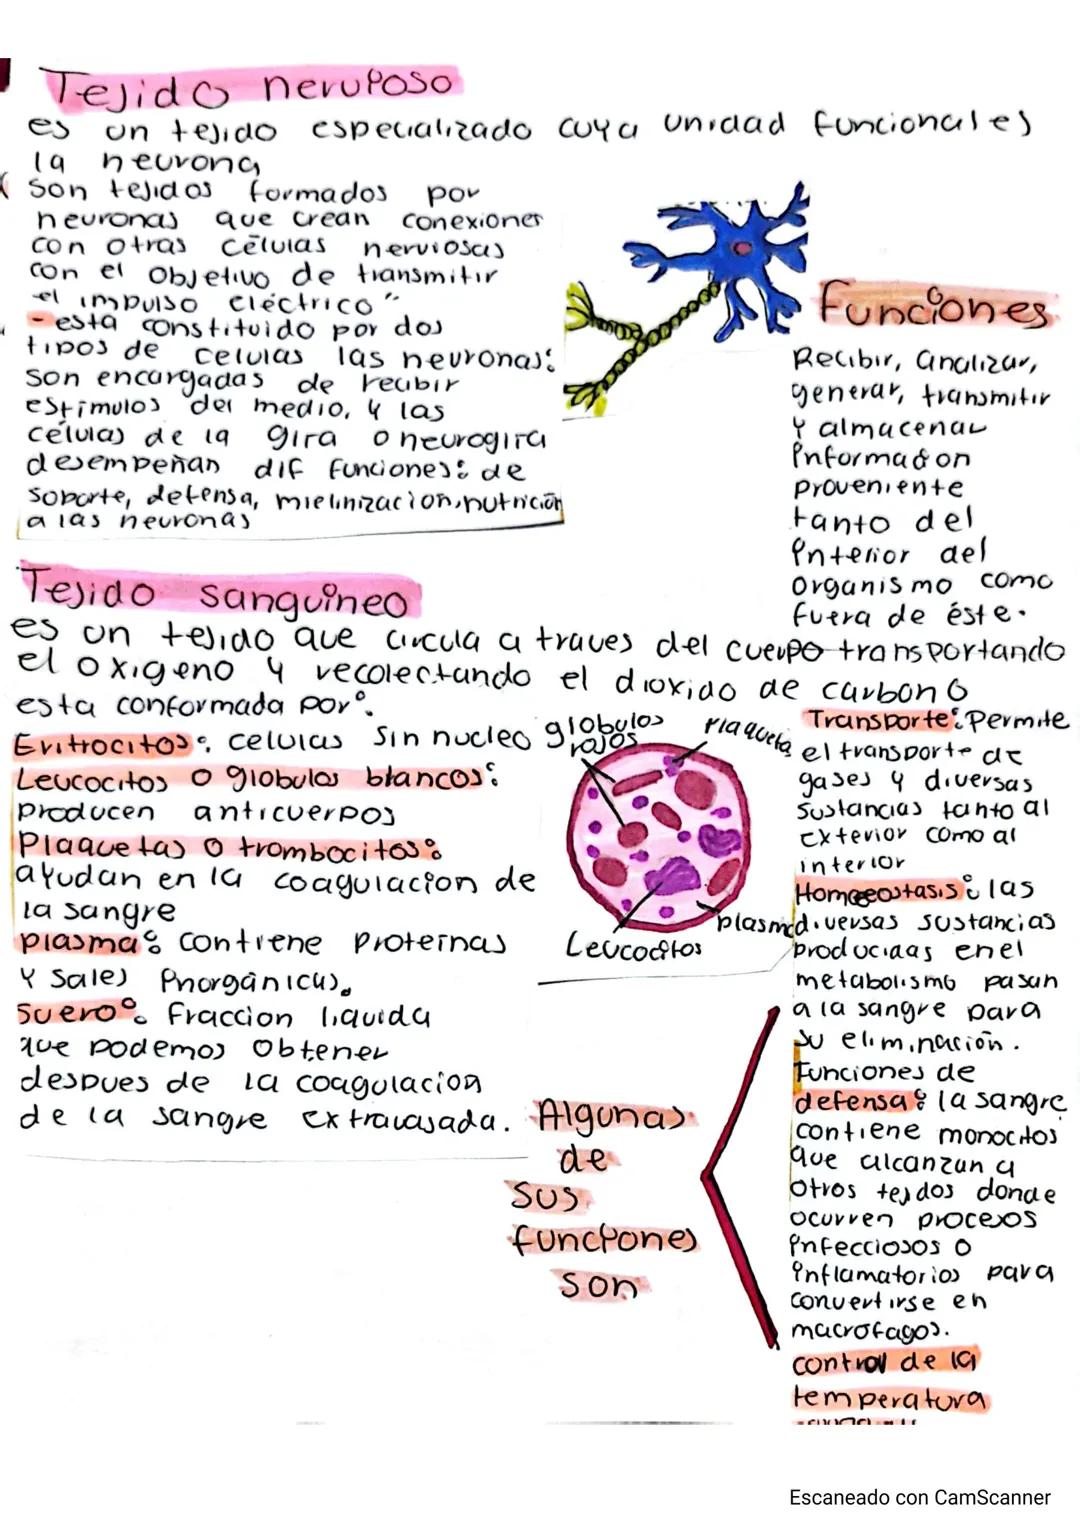 Tejido nervioso
es un tejido especializado cuya unidad funcional es
la neurona
Son tejidos formados por
neuronas que crean conexiones
con otras células nerviosas
con el objetivo de transmitir
el impulso eléctrico"
- esta constituido por dos
tipos de celulas las neuronas:
son encargadas de recibir
estímulos del medio, y las
células de la gira o neurogira
desempeñan dif funciones: de
soporte, defensa, mielinizacion, nutrición
a las neuronas
Funciones
Recibir, analizar,
generar, transmitir
y almacenar
informacion
proveniente
tanto del
interior del
organismo como
fuera de éste.
Tejido sanguineo
es un tejido que circula a traves del cuerpo transportando
el oxigeno y recolectando el dioxido de carbono
esta conformada por:
Eritrocitos: celulas sin nucleo
Leucocitos o globulos blancos:
producen anticuerpos
Plaquetas o trombocitos:
ayudan en la coagulacion de
la sangre
plasma: contiene proteinas
y sales inorgánicas.
Suero: Fraccion liquida
que podemos obtener
despues de la coagulacion
de la sangre extravasada.
globulos
rojos
Plaqueta
plasma
Leucocitos
Algunas
de
sus
funciones
son
Transporte: Permite
el transporte de
gases y diversas
sustancias tanto al
exterior como al
interior
Homeostasis: las
diversas sustancias
producidas en el
metabolismo pasan
a la sangre para
su eliminación.
Funciones de
defensa: la sangre
contiene monocitos
que alcanzan a
otros tejidos donde
ocurren procesos
infecciosos o
inflamatorios para
convertirse en
macrofagos.
control de la
temperatura
Escaneado con CamScanner